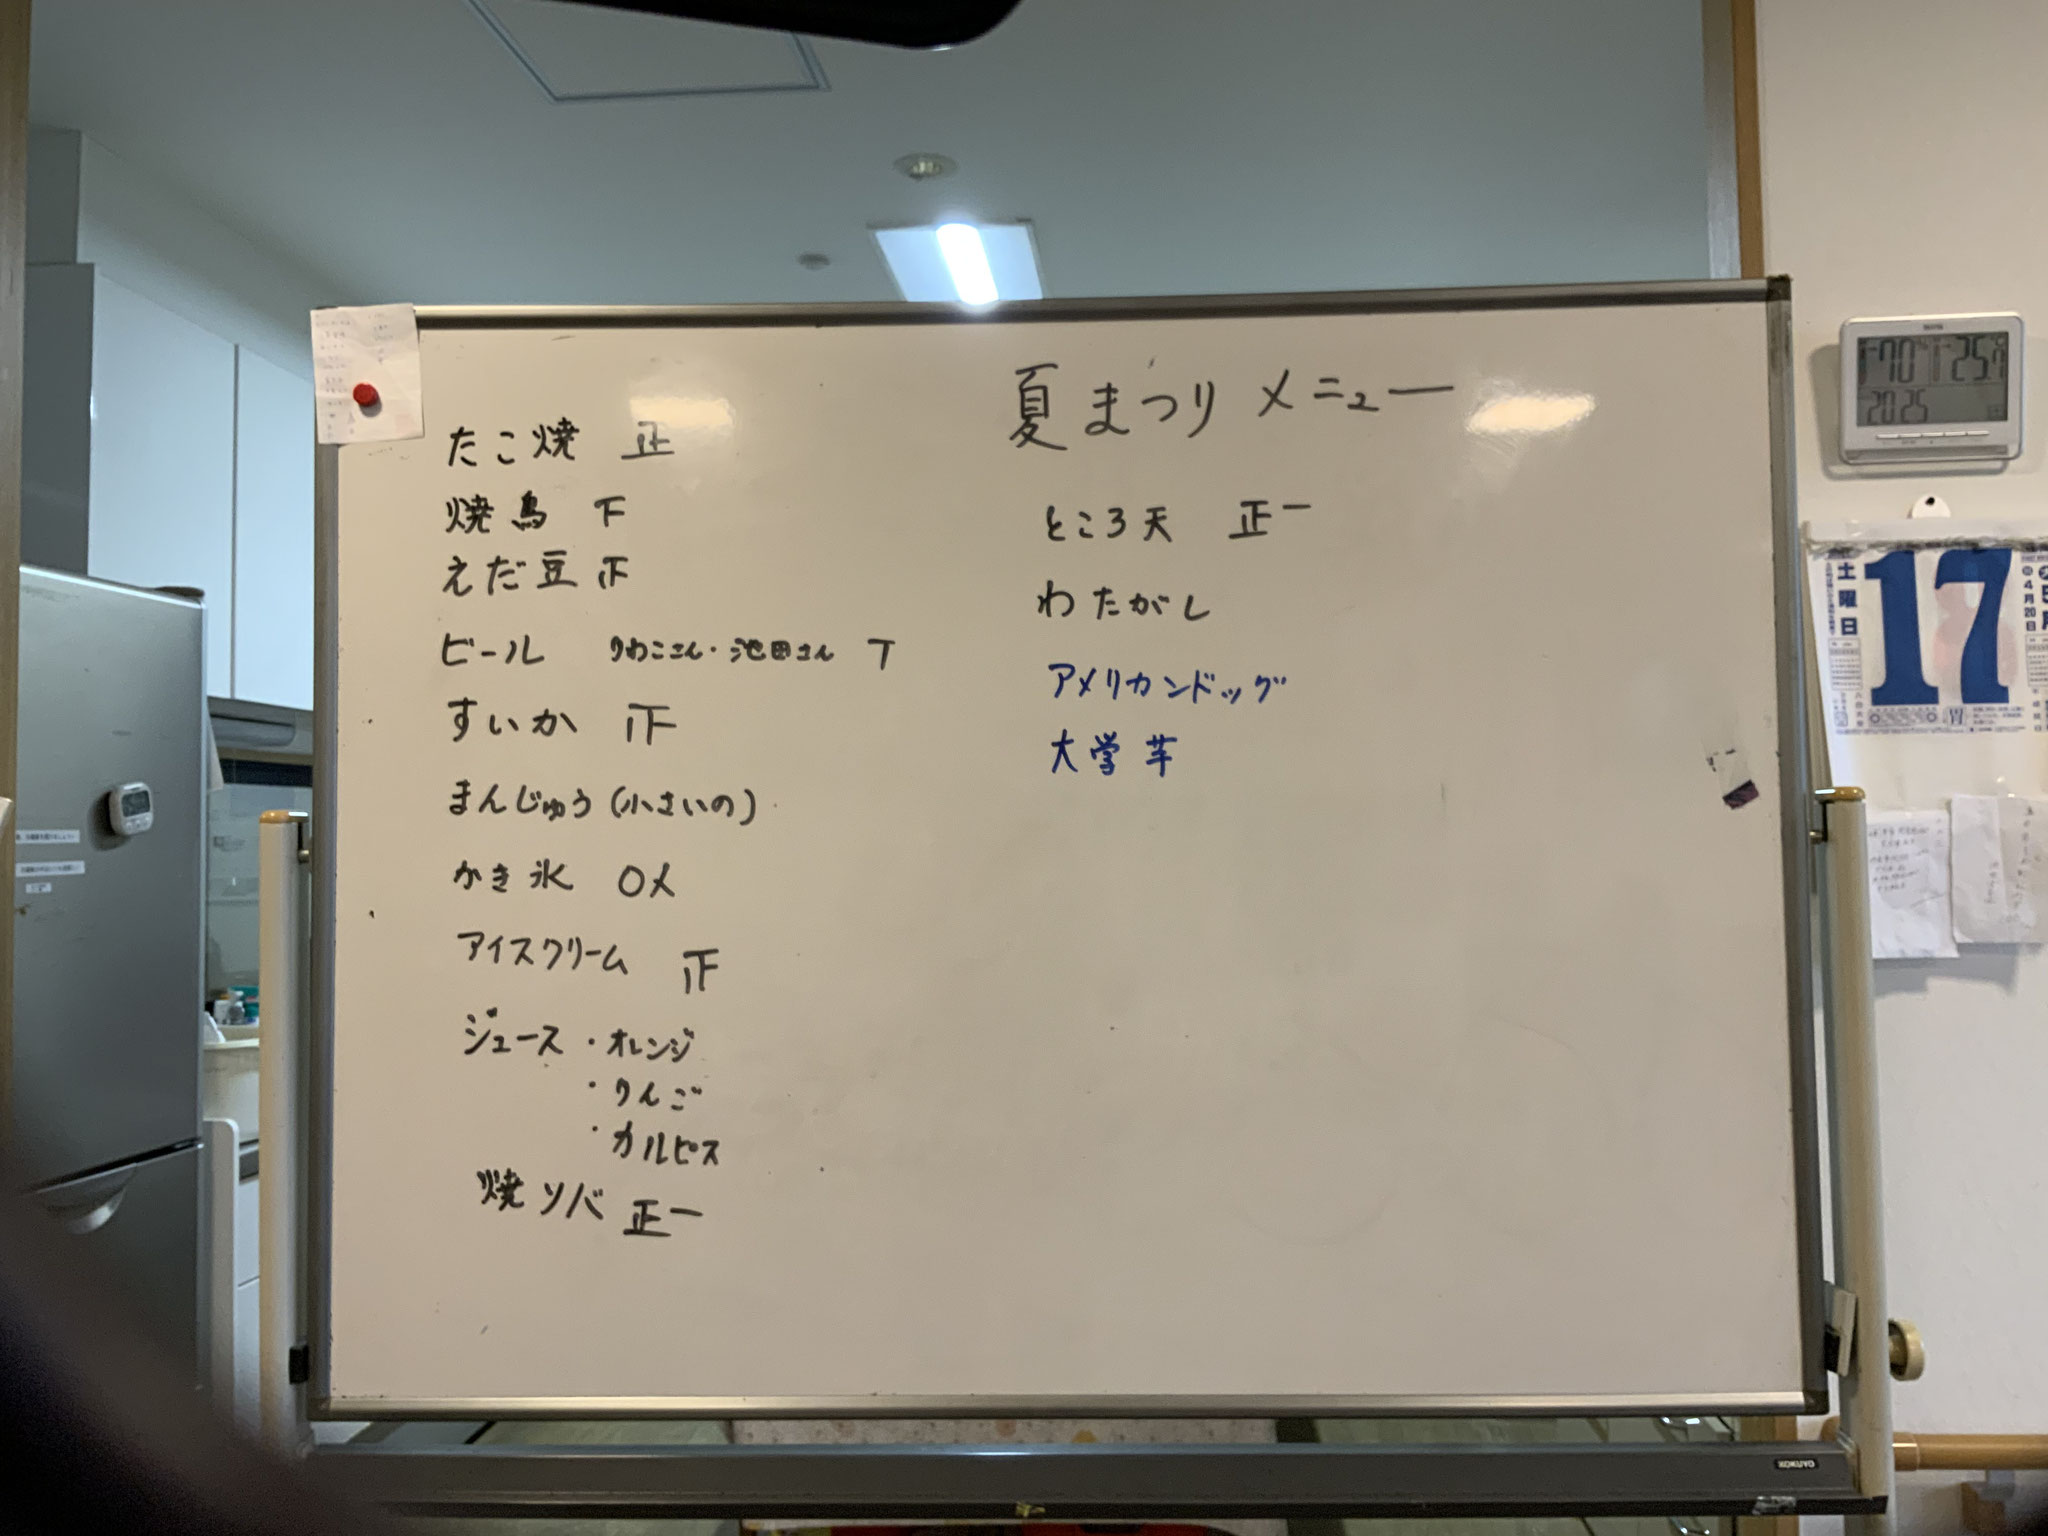 夏まつりメニュー
たこ焼 正
焼鳥 下
えだ豆 正
ビール りわこさん・池田さん T
すいか 正
まんじゅう(小さいの)
かき氷 〇メ
アイスクリーム 正
ジュース ・オレンジ
・りんご
・カルピス
焼ソバ 正一
ところ天 正一
わたがし
アメリカンドッグ
大学芋
70
25.
20:25
土曜日
17
4月20日
KOKUYO